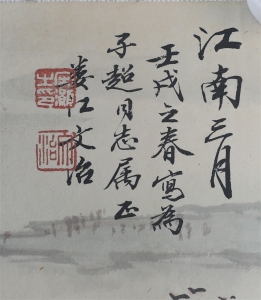 江南三月
壬戌之春寫為
子超同志属正
婁江文治